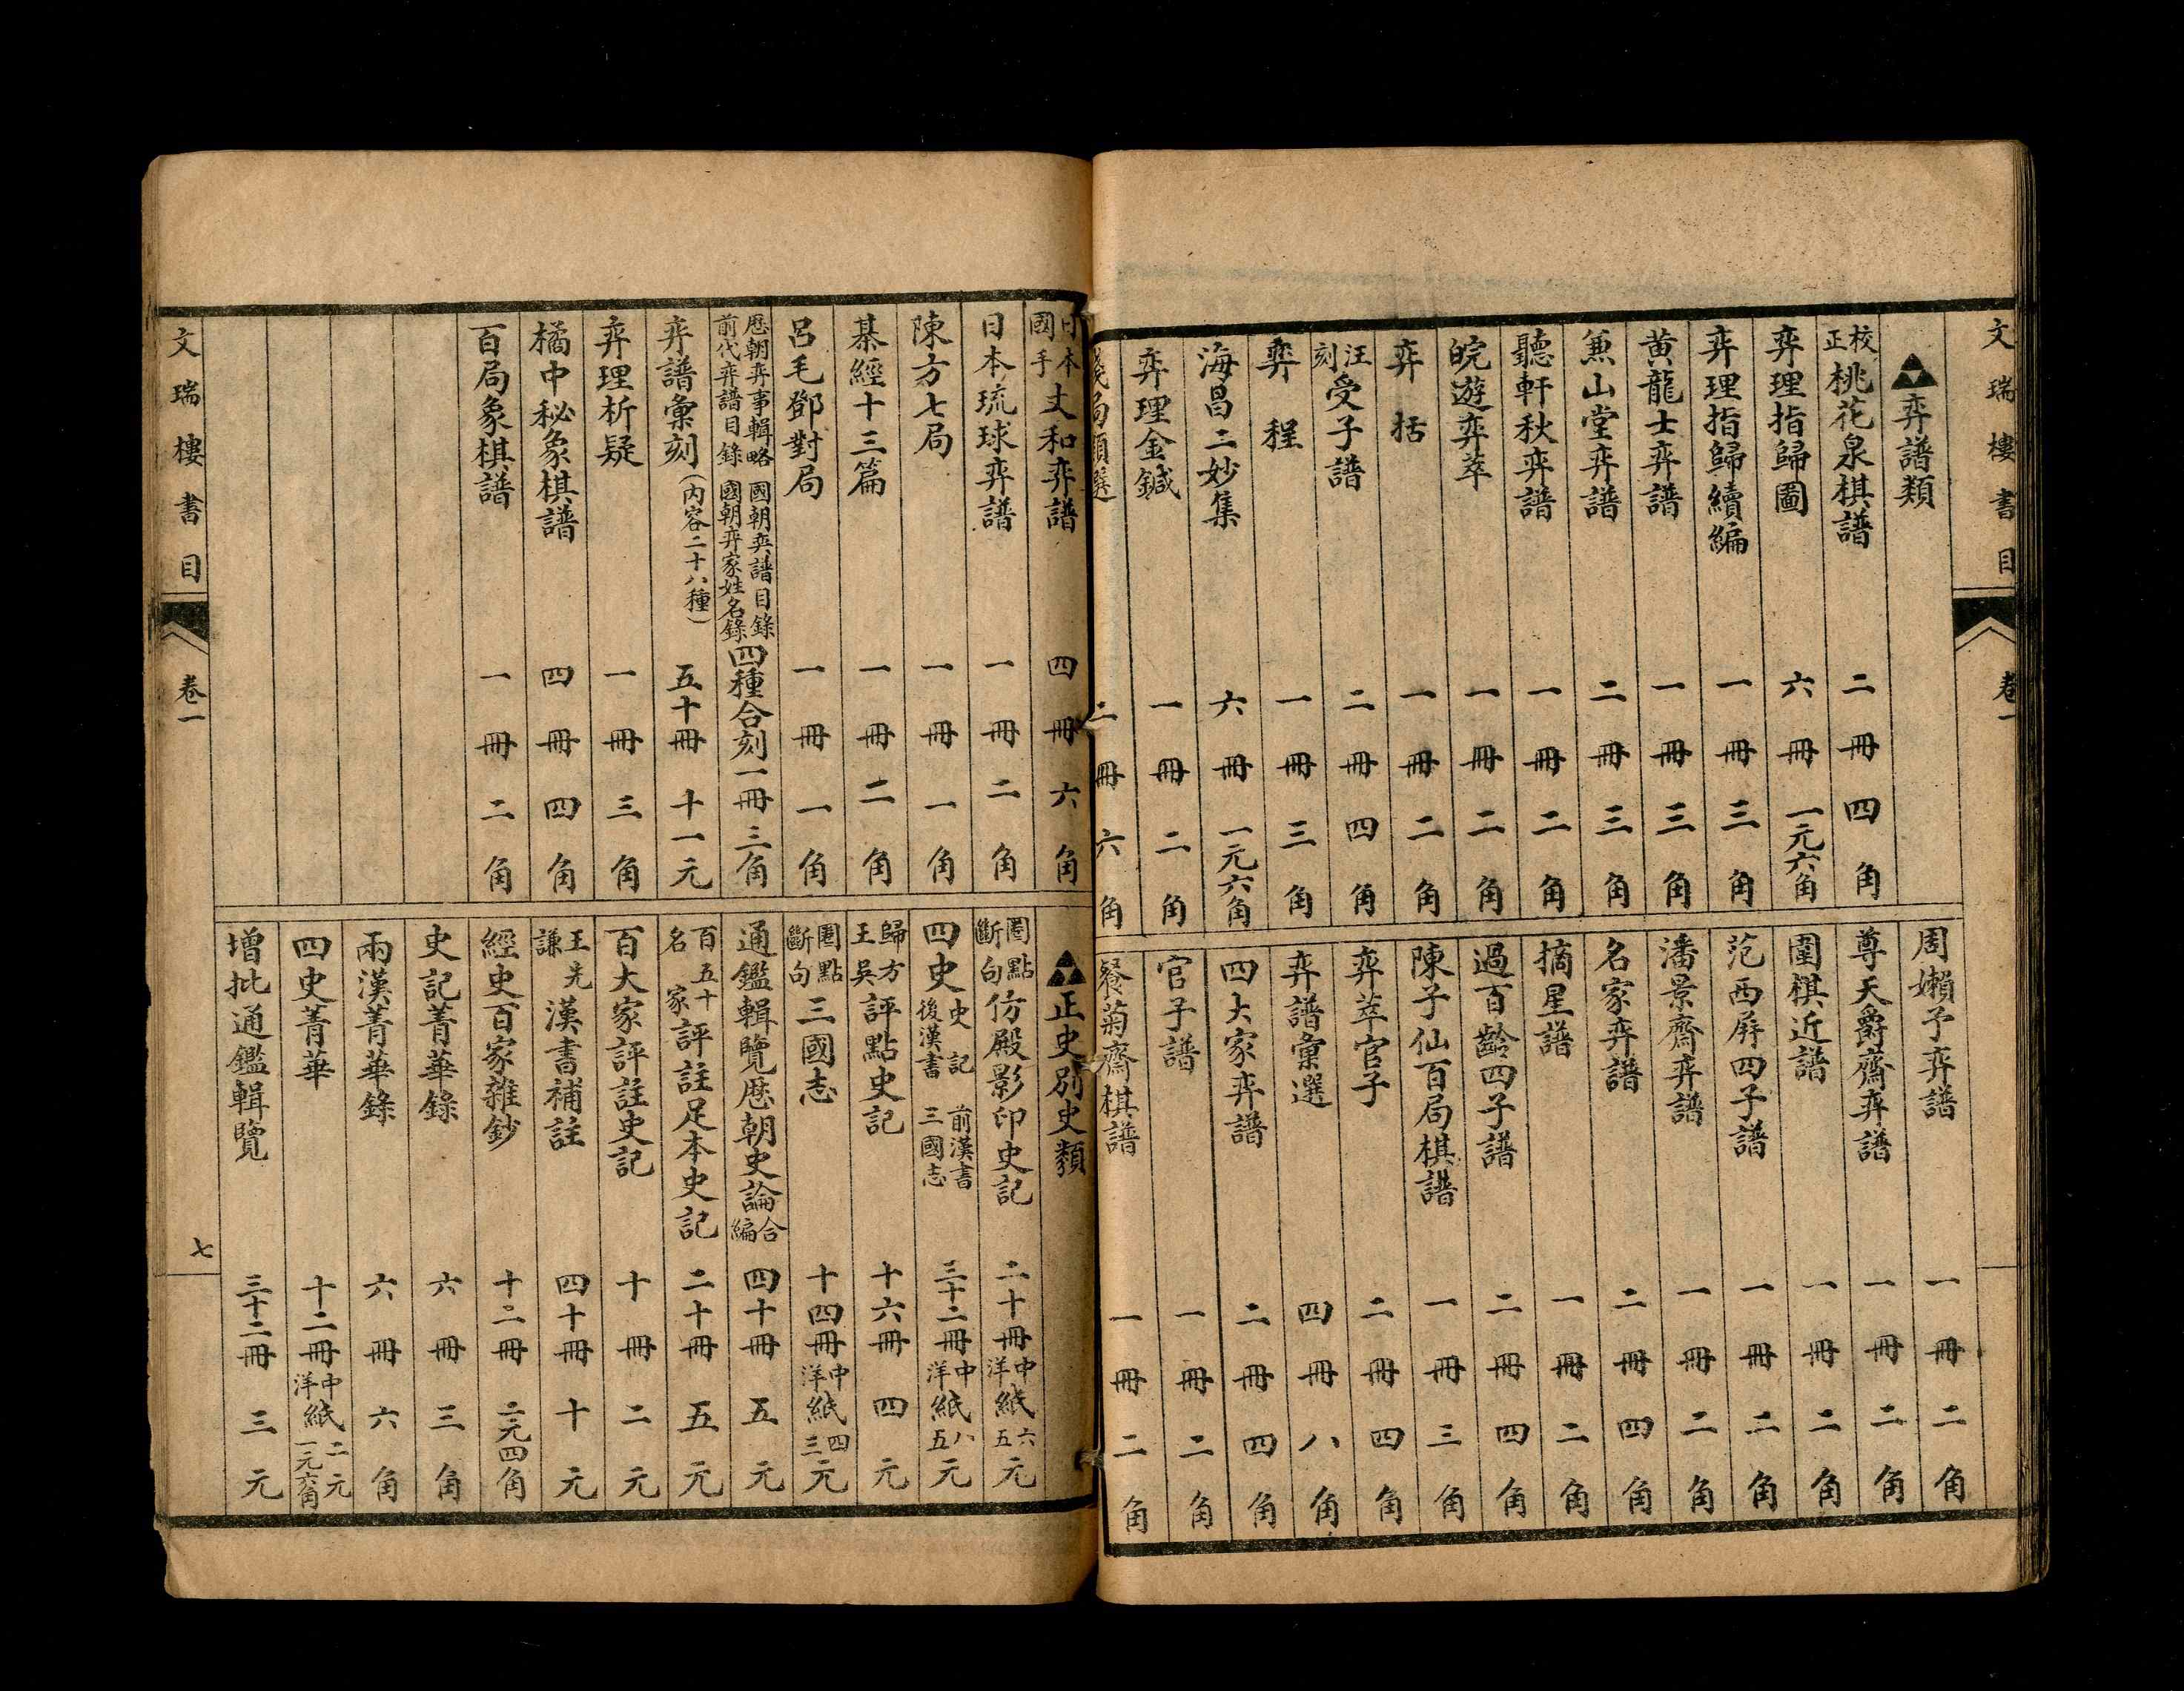 文瑞樓書目
卷一
▲弈譜類
校正桃花泉棋譜 二冊 四角
弈理指歸圖 六冊 一元六角
弈理指歸續編 一冊 三角
黃龍士弈譜 一冊 三角
兼山堂弈譜 二冊 三角
聽軒秋弈譜 一冊 二角
皖遊弈萃 一冊 二角
弈括 一冊 二角
汪刻受子譜 二冊 四角
弈程 一冊 三角
海昌二妙集 六冊 一元六角
弈理金鍼 一冊 二角
局類選 二冊 六角
周嬾予弈譜 一冊 二角
尊天爵齋弈譜 一冊 二角
圍棋近譜 一冊 二角
范西屏四子譜 一冊 二角
潘景齋弈譜 一冊 二角
名家弈譜 二冊 四角
摘星譜 一冊 二角
過百齡四子譜 二冊 四角
陳子仙百局棋譜 一冊 三角
弈萃官子 二冊 四角
弈譜彙選 四冊 八角
四大家弈譜 二冊 四角
官子譜 一冊 二角
餐菊齋棋譜 一冊 二角
日本國手丈和弈譜 四冊 六角
日本琉球弈譜 一冊 二角
陳方七局 一冊 一角
棊經十三篇 一冊 二角
呂毛鄧對局 一冊 一角
歷朝弈事輯略 國朝弈譜目錄 前代弈譜目錄 國朝弈家姓名錄 四種合刻一冊 三角
弈譜彙刻（內容二十八種） 五十冊 十一元
弈理析疑 一冊 三角
橘中秘象棋譜 四冊 四角
百局象棋譜 一冊 二角
▲正史別史類
圈點斷句仿殿影印史記 二十冊 中洋紙六五元
四史 史記 前漢書 後漢書 三國志 三十二冊 中洋紙八五元
歸方王吳評點史記 十六冊 四元
圈點斷句三國志 十四冊 中洋紙四三元
通鑑輯覽歷朝史論合編 四十冊 五元
百五十名家評註足本史記 二十冊 五元
百大家評註史記 十冊 二元
王先謙漢書補註 四十冊 十元
經史百家雜鈔 十二冊 二元四角
史記菁華錄 六冊 三角
兩漢菁華錄 六冊 六角
四史菁華 十二冊 中洋紙二元一元六角
增批通鑑輯覽 三十二冊 三元
文瑞樓書目
卷一
七